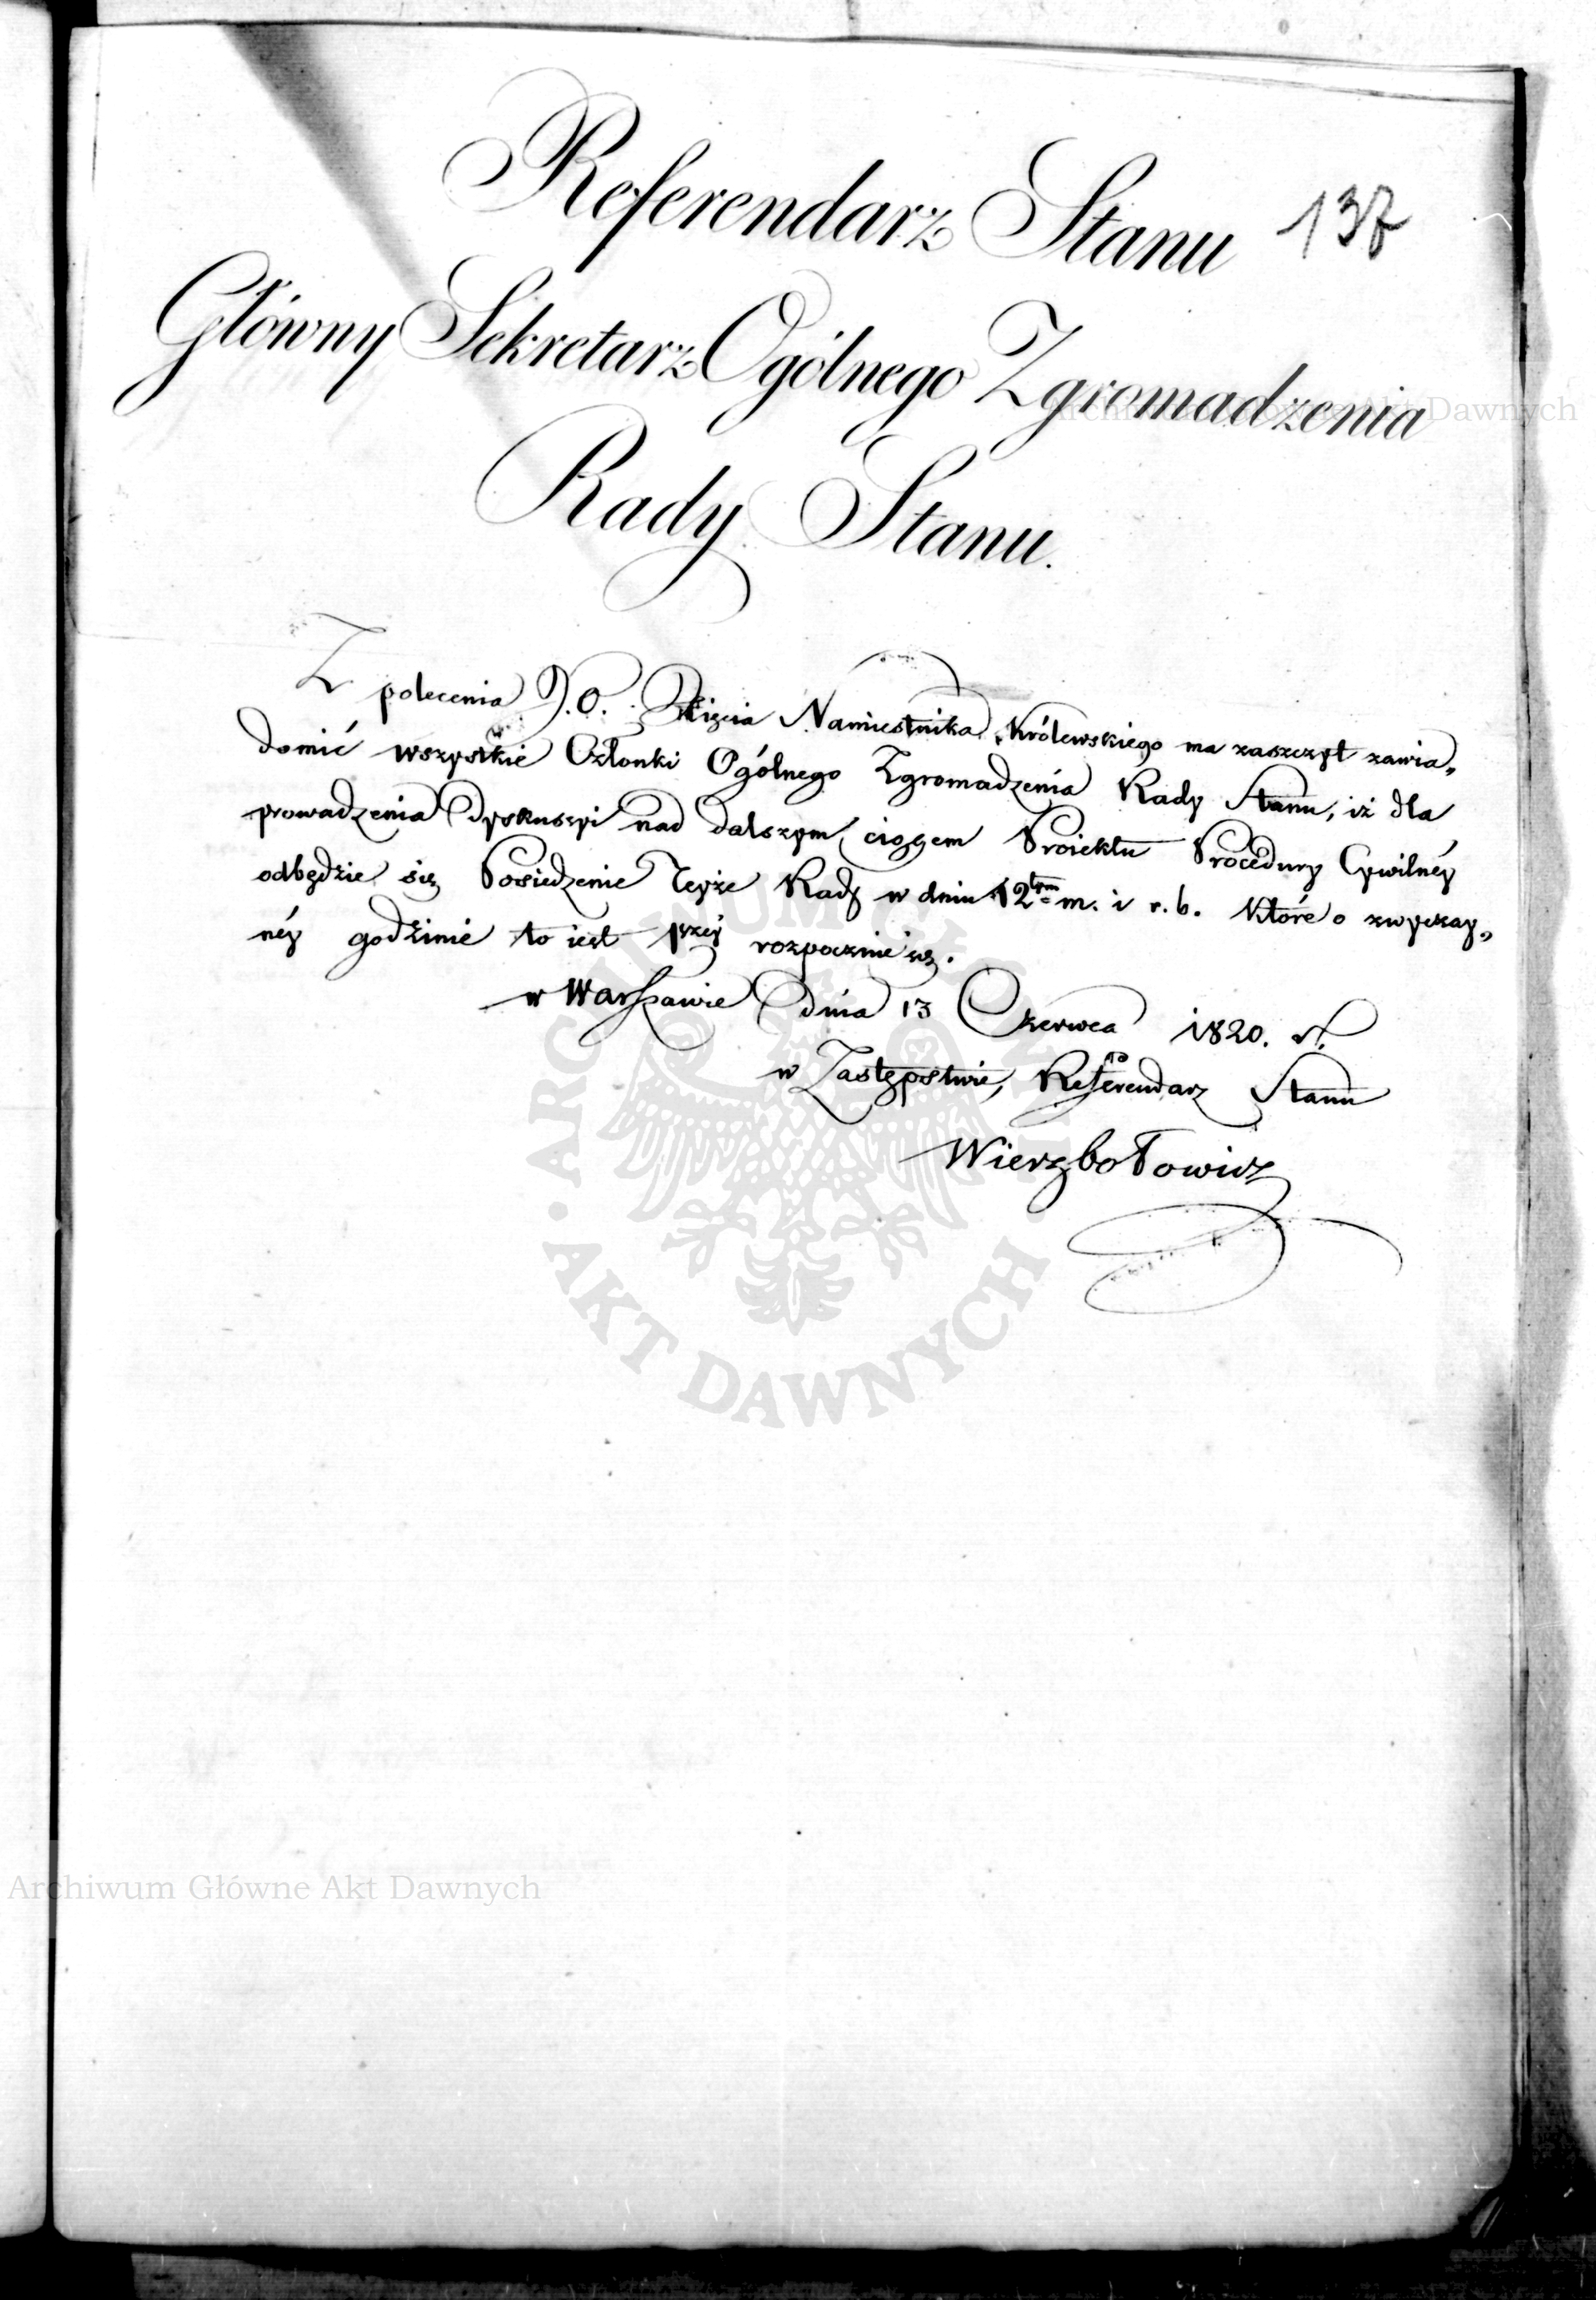 Referendarz Stanu 137
Główny Sekretarz Ogólnego Zgromadzenia
Rady Stanu.
Z polecenia J.O. Xięcia Namiestnika Królewskiego ma zaszczyt zawia„
domić wszystkie Członki Ogólnego Zgromadzenia Rady Stanu, iż dla
prowadzenia dyskussyi nad dalszym ciągiem Proiektu Procedury Cywilnéy
odbędzie się Posiedzenie teyże Rady w dniu m. i r. b. które o zwyczay„
néy godzinie to iest rozpocznie się.
w Warszawie dnia 13 Czerwca 1820. r.
w Zastępstwie, Referendarz Stanu
Wierzbołowicz
ARCHIWUM GŁÓWNE
AKT DAWNYCH
Archiwum Główne Akt Dawnych
Archiwum Główne Akt Dawnych